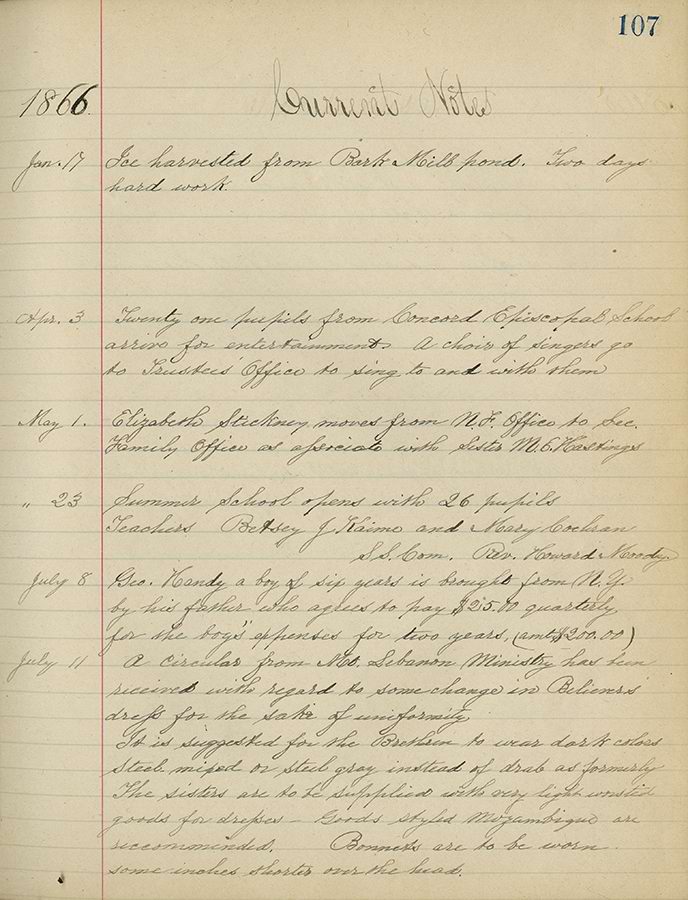 107
Current Notes
1866.
Jan. 17 Ice harvested from Bark Mill pond. Two days
hard work.
Apr. 3 Twenty one pupils from Concord Episcopal School
arrive for entertainment. A choir of singers go
to Trustees' Office to sing to and with them
May 1. Elizabeth Stickney moves from N.F. Office to Sec.
Family Office as associate with Sister M. E. Hastings
" 23 Summer School opens with 26 pupils
Teachers Betsey J Kaime and Mary Cochran
S.S. Com. Rev. Howard Moody.
July 8 Geo. Handy a boy of six years is brought from N.Y.
by his father who agrees to pay $25.00 quarterly
for the boy's expenses for two years, (amt $200.00)
July 11 A circular from Mt. Lebanon Ministry has been
received with regard to some change in Believers
dress for the sake of uniformity
It is suggested for the Brethren to wear dark colors
Steel mixed or steel gray instead of drab as formerly
The sisters are to be supplied with very light worsted
goods for dresses — Goods styled Mozambique are
reccommended. Bonnets are to be worn
some inches shorter over the head.